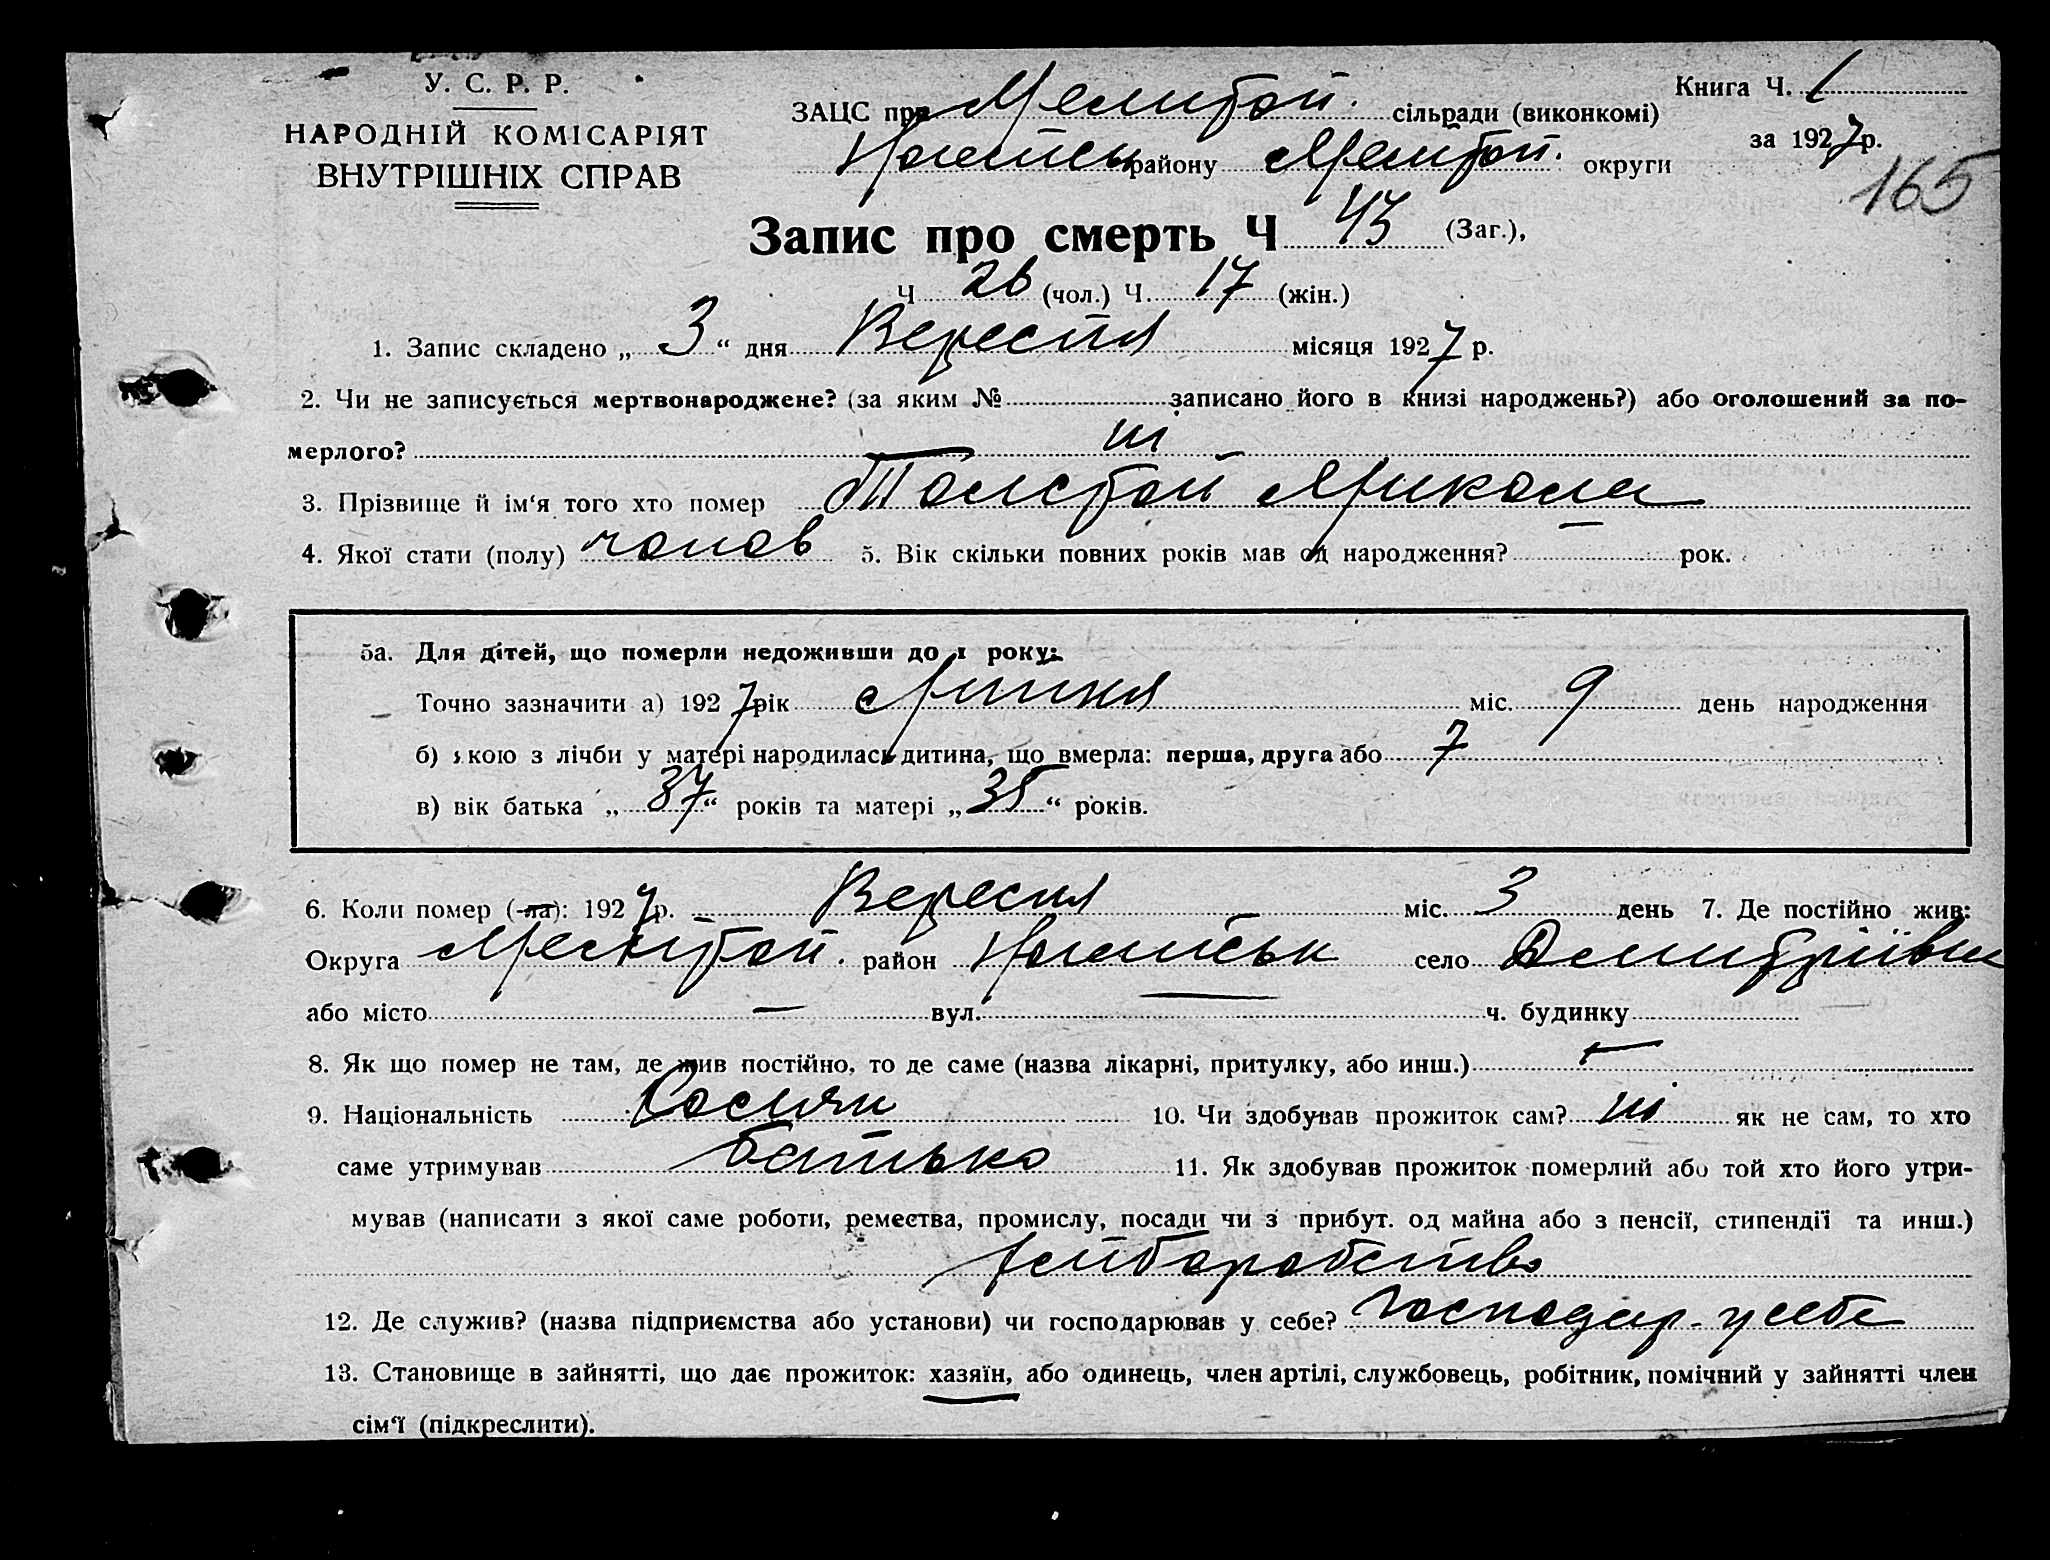 У. С. Р. Р.
НАРОДНІЙ КОМІСАРІЯТ
ВНУТРІШНІХ СПРАВ
ЗАЦС при Мелітоп. сільради (виконкомі)
району Мелітоп. округи
Книга Ч. 1
за 1927 р.
165
Запис про смерть Ч 43 (Заг.),
Ч 26 (чол.) Ч. 17 (жін.)
1. Запис складено „ 3 “ дня Вересня місяця 1927 р.
2. Чи не записується мертвонароджене? (за яким № записано його в книзі народжень?) або оголошений за по-
мерлого? ні
3. Прізвище й ім‘я того хто помер Толстой Микола
4. Якої стати (полу) чолов 5. Вік скільки повних років мав од народження? — рок.
5а. Для дітей, що померли недоживши до 1 року:
Точно зазначити а) 1927 рік Липня міс. 9 день народження
б) якою з лічби у матері народилась дитина, що вмерла: перша, друга або 7
в) вік батька „ 37 “ років та матері „ 35 “ років.
6. Коли помер (-ла): 1927 р. Вересня міс. 3 день 7. Де постійно жив:
Округа Мелітоп. район село Дмитріївка
або місто — вул. — ч. будинку
8. Як що помер не там, де жив постійно, то де саме (назва лікарні, притулку, або инш.) —
9. Національність 10. Чи здобував прожиток сам? ні як не сам, то хто
саме утримував батько 11. Як здобував прожиток померлий або той хто його утри-
мував (написати з якої саме роботи, ремества, промислу, посади чи з прибут. од майна або з пенсії, стипендії та инш.)
хліборобство
12. Де служив? (назва підприємства або установи) чи господарював у себе? господар. у себе
13. Становище в зайнятті, що дає прожиток: хазяїн, або одинець, член артілі, службовець, робітник, помічний у зайнятті член
сім‘ї (підкреслити).